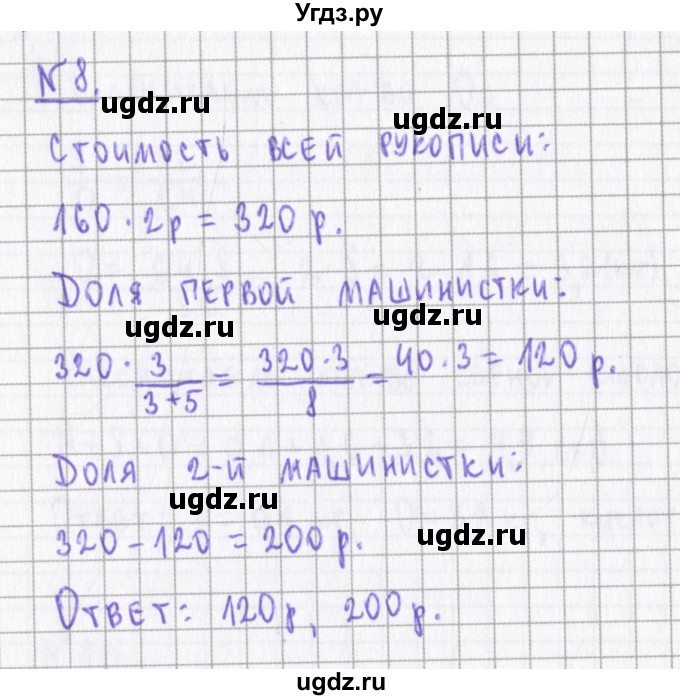 Угдз.ру
№ 8.
ugdz.ru
ugdz.ru
Стоимость всей рукописи:
160 · 2р = 320 р.
Доля первой машинистки:
ugdz.ru
ugdz.ru
320 · 3/(3+5) = (320·3)/8 = 40 · 3 = 120 р.
Доля 2-й машинистки:
ugdz.ru
320 – 120 = 200 р.
ugdz.ru
Ответ: 120р, 200р.
ugdz.ru